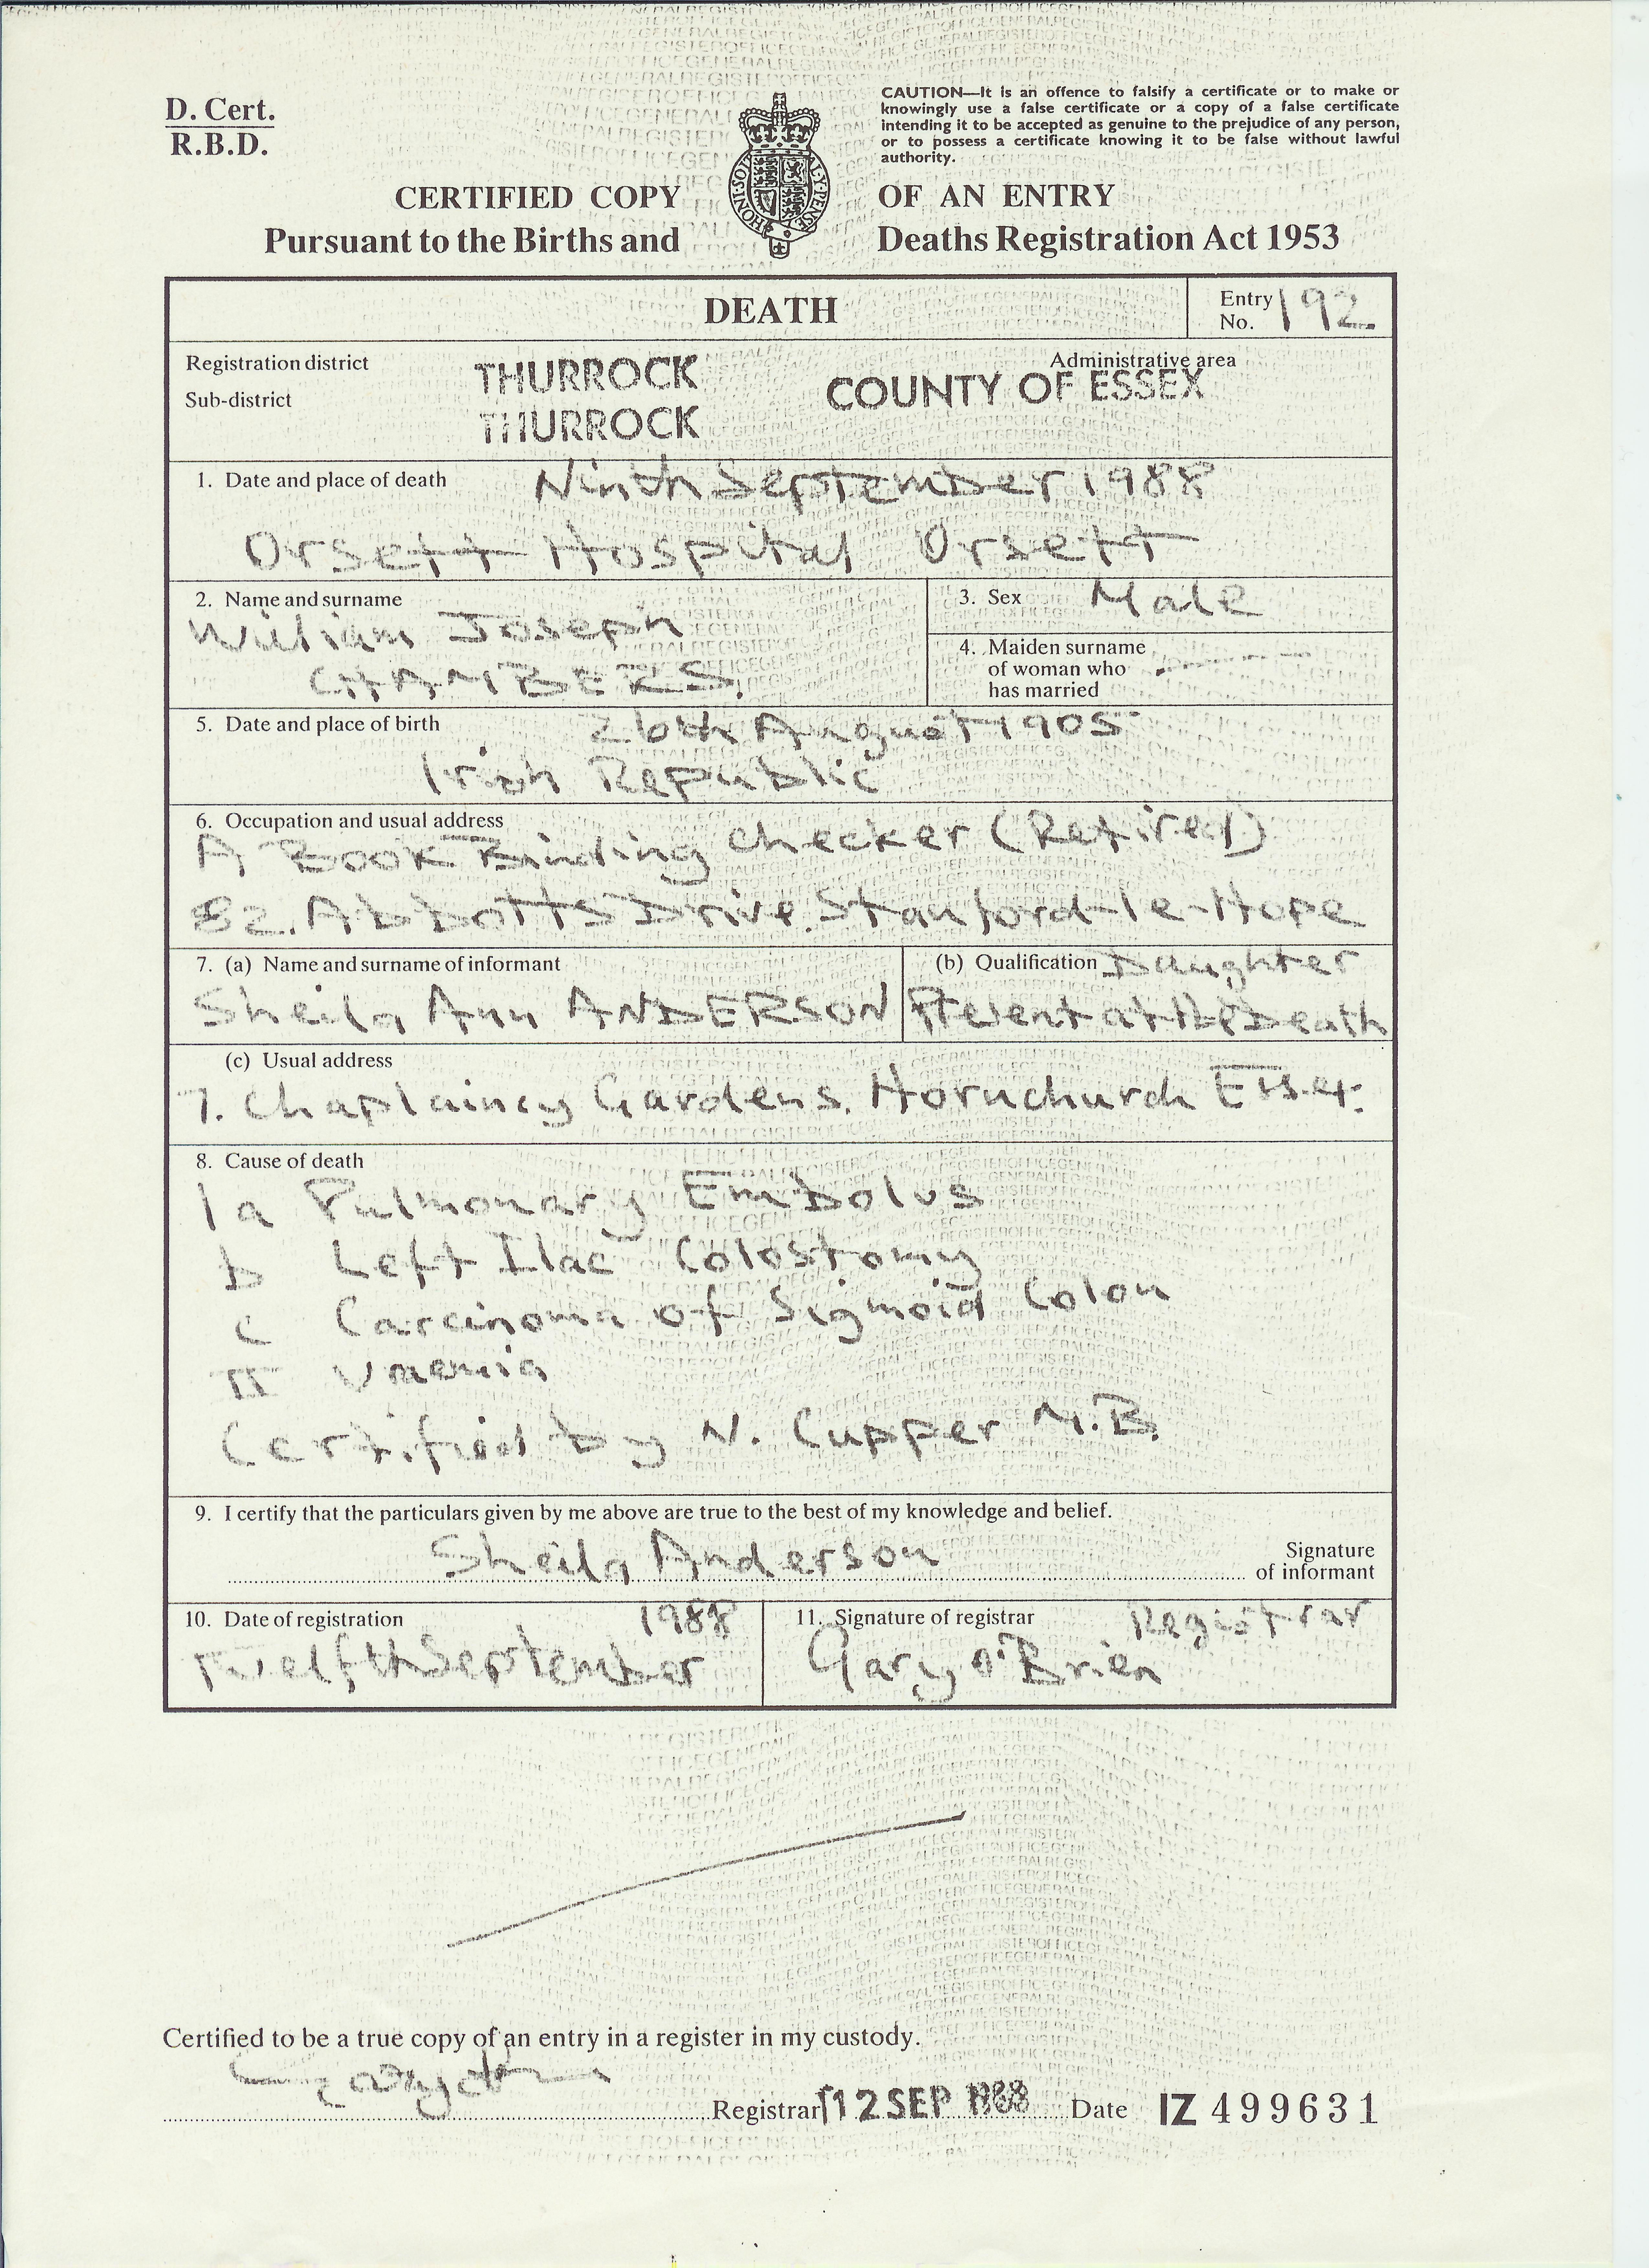 D. Cert.
R.B.D.
CAUTION—It is an offence to falsify a certificate or to make or
knowingly use a false certificate or a copy of a false certificate
intending it to be accepted as genuine to the prejudice of any person,
or to possess a certificate knowing it to be false without lawful
authority.
CERTIFIED COPY OF AN ENTRY
Pursuant to the Births and Deaths Registration Act 1953
HONI·SOIT
DEATH
Entry No. 192
Registration district THURROCK
Administrative area
COUNTY OF ESSEX
Sub-district THURROCK
1. Date and place of death Ninth September 1988
Orsett Hospital Orsett
2. Name and surname
William Joseph
CHAMBERS.
3. Sex Male
4. Maiden surname
of woman who
has married
5. Date and place of birth 26th August 1905
Irish Republic
6. Occupation and usual address
A Book Binding Checker (Retired)
82. Abbotts Drive. Stanford-le-Hope
7. (a) Name and surname of informant
Sheila Ann ANDERSON
(b) Qualification Daughter
Present at the Death
(c) Usual address
7. Chaplaincy Gardens. Hornchurch Essex.
8. Cause of death
1a Pulmonary Embolus
b Left Ilac Colostomy
c Carcinoma of Sigmoid Colon
II Uraemia
Certified by N. Cupper M.B.
9. I certify that the particulars given by me above are true to the best of my knowledge and belief.
Sheila Anderson
Signature
of informant
10. Date of registration 1988
Twelfth September
11. Signature of registrar Registrar
Gary O'Brien
Certified to be a true copy of an entry in a register in my custody.
Registrar 12 SEP 1988 Date IZ 499631